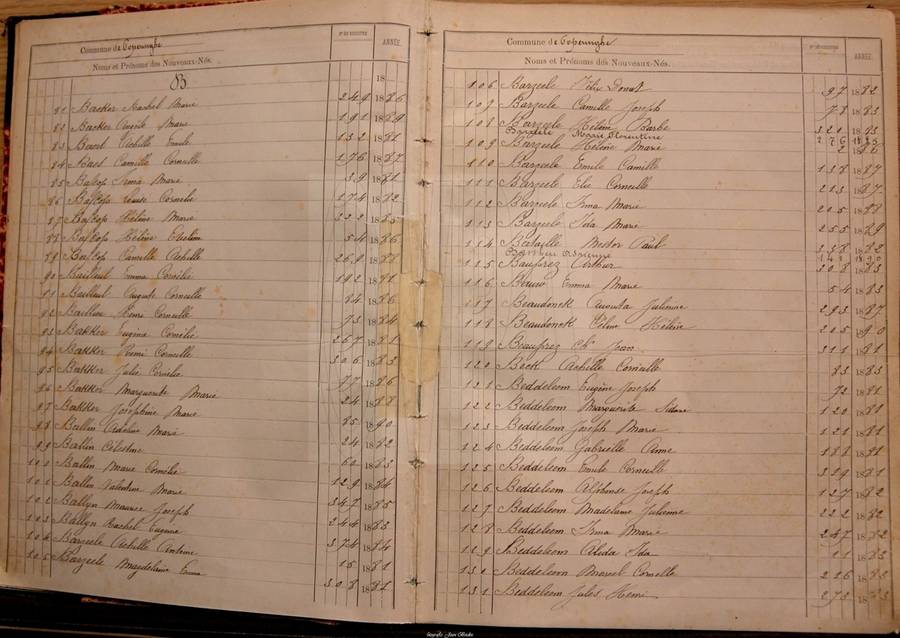 Commune de Poperinghe
Nº DU REGISTRE
ANNÉE.
Noms et Prénoms des Nouveaux-Nés.
18
B
81 Backer Rachel Marie 249 1886
82 Backer Marie 191 1889
83 Baert Achille Emile 132 1881
84 Baes Camille Corneille 176 1887
85 Bascop Irma Marie 39 1881
86 Bascop Louise Cornélie 174 1882
87 Bascop Hélène Marie 222 1885
88 Bascop Hélène 54 1886
89 Bascop Camille Achille 269 1888
90 Bailleul Emma Cornélie 192 1881
91 Bailleul Auguste Corneille 84 1886
92 Bailleu Henri Corneille 93 1884
93 Bakker Eugénie Cornélie 267 1881
94 Bakker Remi Corneille 306 1883
95 Bakker Julie Cornélie 77 1886
96 Bakker Marguerite Marie 24 1888
97 Bakker Joséphine Marie 85 1890
98 Ballin Marie 24 1882
99 Ballin Célestine 60 1883
100 Ballin Marie Cornélie 129 1884
101 Ballin Valentine Marie 347 1885
102 Ballyn Maurice Joseph 244 1883
103 Ballyn Rachel Eugénie 374 1884
104 Barzeele Achille Antoine 15 1881
105 Barzeele Magdelaine Emma 308 1881
Commune de Poperinghe
Nº DU REGISTRE
ANNÉE.
Noms et Prénoms des Nouveaux-Nés.
106 Barzeele Félix Donat 97 1882
107 Barzeele Camille Joseph 78 1883
108 Barzeele Hélène Barbe 320 1883
Barzeele Marie Florentine 276 1885
109 Barzeele Hélène Marie 1886
110 Barzeele Emile Camille 138 1887
111 Barzeele Elie Corneille 213 1887
112 Barzeele Irma Marie 205 1888
113 Barzeele Ida Marie 255 1889
114 Bataille Nestor Paul 338 1882
141 1890
115 Baufrez Arthur 308 1883
116 Emma Marie 54 1883
117 Beaudonck Augusta Julienne 293 1887
118 Beaudonck Céline Hélène 205 1890
119 Beaufrez Chs Jean 311 1881
120 Beck Achille Corneille 83 1883
121 Beddeleem Eugène Joseph 72 1881
122 Beddeleem Marguerite Sidonie 120 1881
123 Beddeleem Joseph Marie 121 1881
124 Beddeleem Gabrielle Anne 188 1881
125 Beddeleem Emile Corneille 319 1881
126 Beddeleem Alphonse Joseph 127 1882
127 Beddeleem Madelaine Julienne 222 1882
128 Beddeleem Irma Marie 247 1882
129 Beddeleem Alida Ida 11 1883
130 Beddeleem Marcel Corneille 226 1883
131 Beddeleem Jules Henri 273 1883